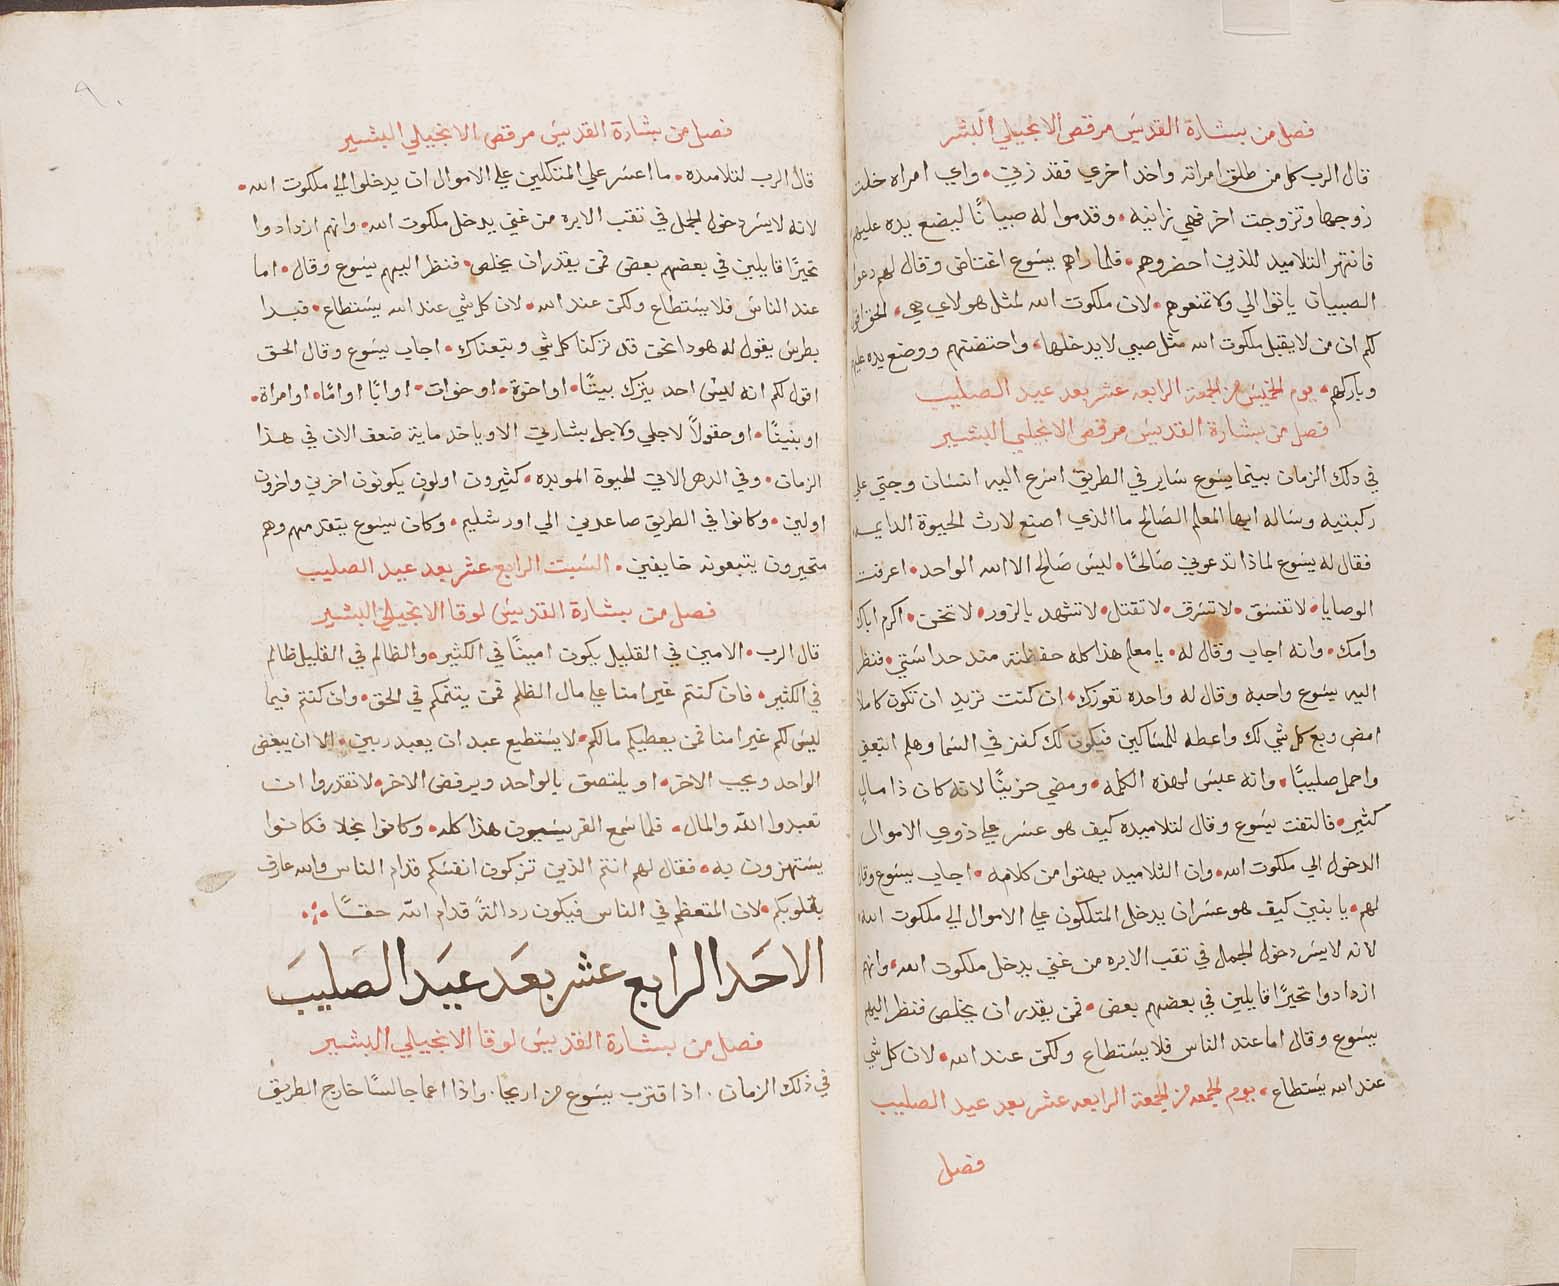 فصل من بشارة القديس مرقص الانجيلي البشر
قال الرب كل من طلق امراته واخد اخري فقد زني • واي امراه خلت
زوجها وتزوجت اخر فهي زانيه • وقدموا له صبيانًا ليضع يده عليهم
فانتهر التلاميد للذين احضروهم • فلما راهم يسوع اغتاض وقال لهم دعوا
الصبيان ياتوا الي ولا تمنعوهم • لان ملكوت الله لمثل هولاي هي • الحق اقول
لكم ان من لا يقبل ملكوت الله مثل صبي لا يدخلها • واحتضنهم ووضع يده عليهم
وباركهم • يوم الخميس من الجمعة الرابعه عشر بعد عيد الصليب
فصل من بشارة القديس مرقص الانجلي البشير
في دلك الزمان بينما يسوع ساير في الطريق اسرع اليه انسان وجتي علي
ركبتيه وساله ايها المعلم الصالح ما الذي اصنع لارث الحيوة الدايمه
فقال له يسوع لماذا تدعوني صالحًا • ليس صالح الا الله الواحد • اعرفت
الوصايا • لا تفسق • لا تسرق • لا تقتل • لا تشهد بالزور • لا تخن • اكرم اباك
وامك • وانه اجاب وقال له • يا معلم هذا كله حفظته منذ حداستي • فنظر
اليه يسوع واحبه وقال له واحده تعوزك • ان كنت تريد ان تكون كاملا
امض وبع كل شي لك واعطه للمساكين فيكون لك كنز في السما وهلم اتبعني
واحمل صليبًا • وانه عبس لهذه الكلمه • ومضي حزينًا لانه كان ذا مالٍ
كثير • فالتفت يسوع وقال لتلاميده كيف هو عسر علي ذوي الاموال
الدخول الي ملكوت الله • وان التلاميد بهتوا من كلامه • اجاب يسوع وقال
لهم • يا بنين كيف هو عسر ان يدخل المتكلون علي الاموال الي ملكوت الله
لانه لايسر دخول الجمل في تقب الابره من غني يدخل ملكوت الله • وانهم
ازدادوا تحيرًا قايلين في بعضهم بعض • فمن يقدر ان يخلص فنظر اليهم
يسوع وقال اما عند الناس فلا يستطاع ولكن عند الله • لان كل شي
عند الله يستطاع • يوم الجمعه من الجمعة الرابعه عشر بعد عيد الصليب
فصل
فصل من بشارة القديس مرقص الانجيلي البشير
قال الرب لتلاميده • ما اعسر علي المتكلين علي الاموال ان يدخلوا الي ملكوت الله •
لانه لايسر دخول الجمل في تقب الابره من غني يدخل ملكوت الله • وانهم ازدادوا
تحيرًا قايلين في بعضهم بعض فمن يقدر ان يخلص • فنظر اليهم يسوع وقال • اما
عند الناس فلا يستطاع ولكن عند الله • لان كل شي عند الله يستطاع • فبدا
بطرس يقول له هودا نحن قد تركنا كل شي وتبعناك • اجاب يسوع وقال الحق
اقول لكم انه ليس احد يترك بيتًا • او اخوة • او خوات • او ابًا او امًا • او امراة •
او بنينًا • او حقولًا لاجلي ولاجل بشارتي الا وياخد ماية ضعف الان في هذا
الزمان • وفي الدهر الاتي الحيوة الموبده • كثيرون اولون يكونون اخرين واخرون
اولين • وكانوا في الطريق صاعدين الي اورشليم • وكان يسوع يتقدمهم وهم
متحيرون يتبعونه خايفين • السبت الرابع عشر بعد عيد الصليب
فصل من بشارة القديس لوقا الانجيلي البشير
قال الرب • الامين في القليل يكون امينًا في الكثير • والظالم في القليل ظالم
في الكثير • فان كنتم غير امنا علي مال الظلم فمن يتمنكم في الحق • وان كنتم فيما
ليس لكم غير امنا فمن يعطيكم مالكم • لا يستطيع عبد ان يعبد ربين • الا ان يبغض
الواحد ويحب الاخر • او يلتصق بالواحد ويرفض الاخر • لا تقدروا ان
تعبدوا الله والمال • فلما سمع الفريسيون هذا كله • وكانوا بخلا فكانوا
يستهزون به • فقال لهم انتم الذين تزكون انفسكم قدام الناس والله عارف
بقلوبكم • لان المتعظم في الناس فيكون ردالةً قدام الله حقًا
الاحد الرابع عشر بعد عيد الصليب
فصل من بشارة القديس لوقا الانجيلي البشير
في ذلك الزمان • اذا اقترب يسوع من اريحا • واذا اعما جالسًا خارج الطريق